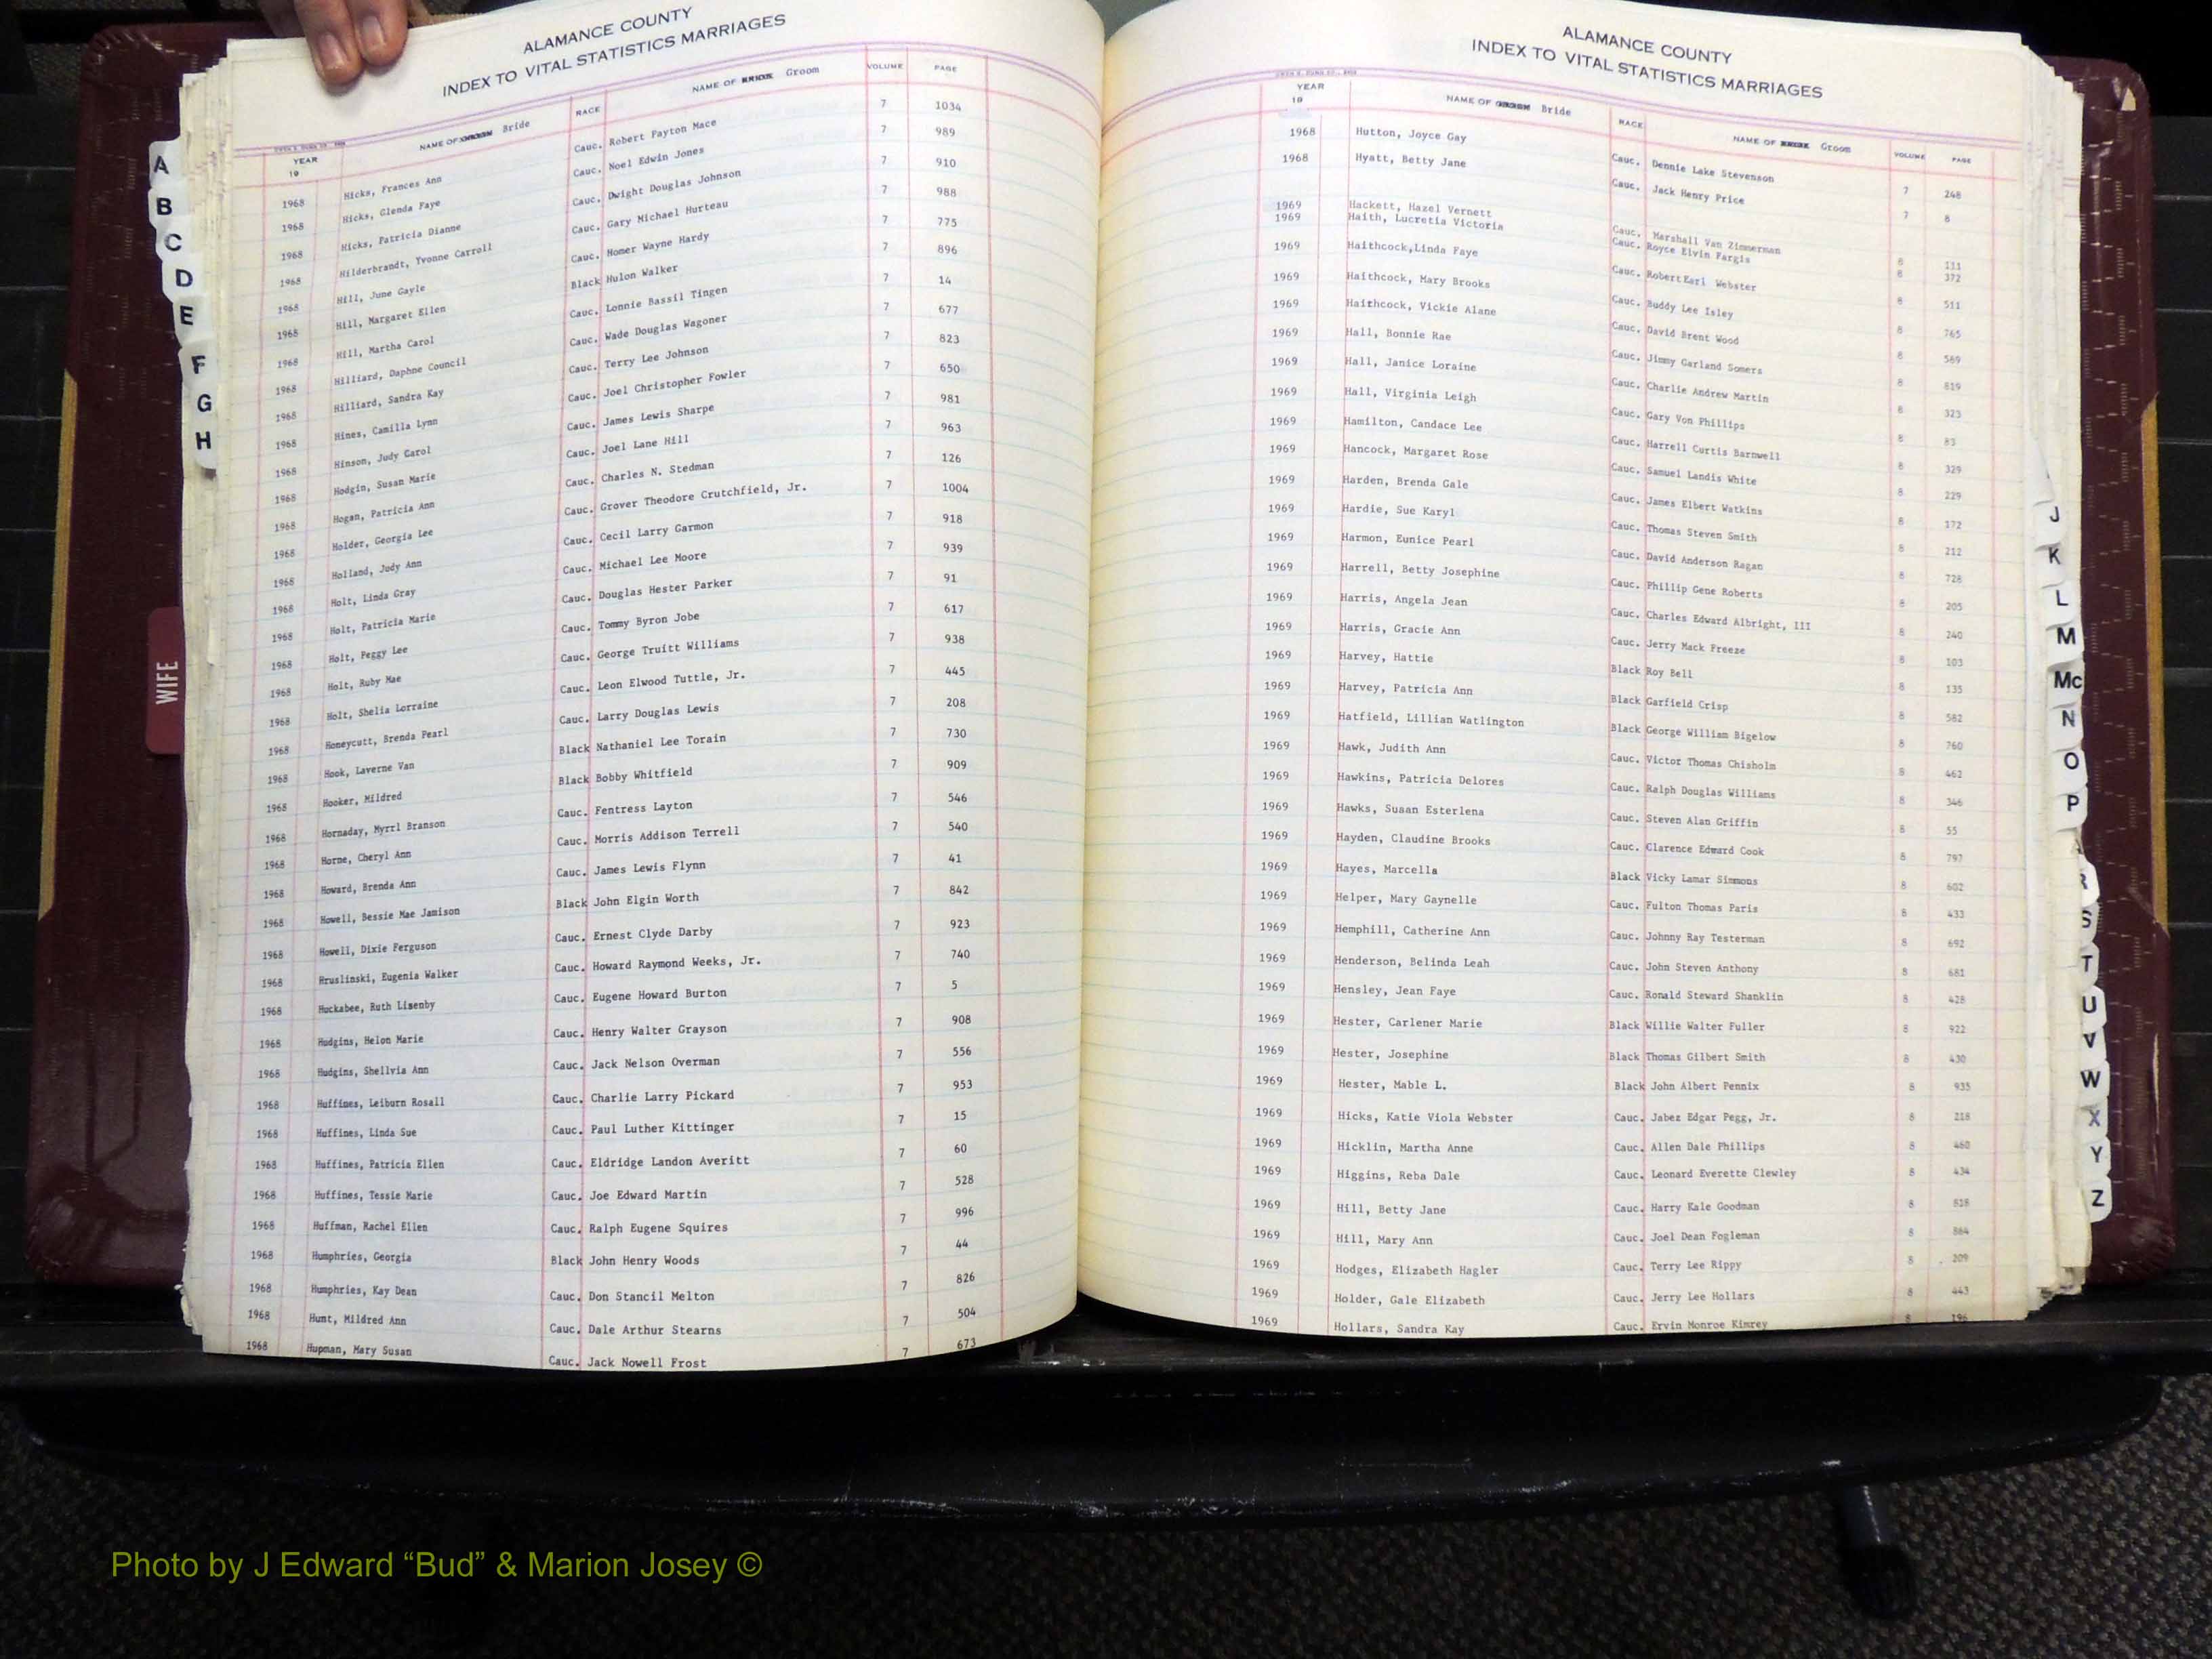 ALAMANCE COUNTY
INDEX TO VITAL STATISTICS MARRIAGES
YEAR 19 NAME OF GROOM Bride RACE NAME OF BRIDE Groom VOLUME PAGE
1968 Hicks, Frances Ann Cauc. Robert Payton Mace 7 1034
1968 Hicks, Glenda Faye Cauc. Noel Edwin Jones 7 989
1968 Hicks, Patricia Dianne Cauc. Dwight Douglas Johnson 7 910
1968 Hilderbrandt, Yvonne Carroll Cauc. Gary Michael Hurteau 7 988
1968 Hill, June Gayle Cauc. Homer Wayne Hardy 7 775
1968 Hill, Margaret Ellen Black Hulon Walker 7 896
1968 Hill, Martha Carol Cauc. Lonnie Bassil Tingen 7 14
1968 Hilliard, Daphne Council Cauc. Wade Douglas Wagoner 7 677
1968 Hilliard, Sandra Kay Cauc. Terry Lee Johnson 7 823
1968 Hines, Camilla Lynn Cauc. Joel Christopher Fowler 7 650
1968 Hinson, Judy Carol Cauc. James Lewis Sharpe 7 981
1968 Hodgin, Susan Marie Cauc. Joel Lane Hill 7 963
1968 Hogan, Patricia Ann Cauc. Charles N. Stedman 7 126
1968 Holder, Georgia Lee Cauc. Grover Theodore Crutchfield, Jr. 7 1004
1968 Holland, Judy Ann Cauc. Cecil Larry Garmon 7 918
1968 Holt, Linda Gray Cauc. Michael Lee Moore 7 939
1968 Holt, Patricia Marie Cauc. Douglas Hester Parker 7 91
1968 Holt, Peggy Lee Cauc. Tommy Byron Jobe 7 617
1968 Holt, Ruby Mae Cauc. George Truitt Williams 7 938
1968 Holt, Shelia Lorraine Cauc. Leon Elwood Tuttle, Jr. 7 445
1968 Honeycutt, Brenda Pearl Cauc. Larry Douglas Lewis 7 208
1968 Hook, Laverne Van Black Nathaniel Lee Torain 7 730
1968 Hooker, Mildred Black Bobby Whitfield 7 909
1968 Hornaday, Myrrl Branson Cauc. Fentress Layton 7 546
1968 Horne, Cheryl Ann Cauc. Morris Addison Terrell 7 540
1968 Howard, Brenda Ann Cauc. James Lewis Flynn 7 41
1968 Howell, Bessie Mae Jamison Black John Elgin Worth 7 842
1968 Howell, Dixie Ferguson Cauc. Ernest Clyde Darby 7 923
1968 Hruslinski, Eugenia Walker Cauc. Howard Raymond Weeks, Jr. 7 740
1968 Huckabee, Ruth Lisenby Cauc. Eugene Howard Burton 7 5
1968 Hudgins, Helon Marie Cauc. Henry Walter Grayson 7 908
1968 Hudgins, Shellvia Ann Cauc. Jack Nelson Overman 7 556
1968 Huffines, Leiburn Rosall Cauc. Charlie Larry Pickard 7 953
1968 Huffines, Linda Sue Cauc. Paul Luther Kittinger 7 15
1968 Huffines, Patricia Ellen Cauc. Eldridge Landon Averitt 7 60
1968 Huffines, Tessie Marie Cauc. Joe Edward Martin 7 528
1968 Huffman, Rachel Ellen Cauc. Ralph Eugene Squires 7 996
1968 Humphries, Georgia Black John Henry Woods 7 44
1968 Humphries, Kay Dean Cauc. Don Stancil Melton 7 826
1968 Hunt, Mildred Ann Cauc. Dale Arthur Stearns 7 504
1968 Hupman, Mary Susan Cauc. Jack Nowell Frost 7 673
A
B
C
D
E
F
G
H
WIFE
ALAMANCE COUNTY
INDEX TO VITAL STATISTICS MARRIAGES
YEAR 19 NAME OF GROOM Bride RACE NAME OF BRIDE Groom VOLUME PAGE
1968 Hutton, Joyce Gay Cauc. Dennie Lake Stevenson 7 248
1968 Hyatt, Betty Jane Cauc. Jack Henry Price 7 8
1969 Hackett, Hazel Vernett Cauc. Marshall Van Zimmerman 8 111
1969 Haith, Lucretia Victoria Cauc. Royce Elvin Fargis 8 372
1969 Haithcock,Linda Faye Cauc. Robert Earl Webster 8 511
1969 Haithcock, Mary Brooks Cauc. Buddy Lee Isley 8 765
1969 Haithcock, Vickie Alane Cauc. David Brent Wood 8 569
1969 Hall, Bonnie Rae Cauc. Jimmy Garland Somers 8 819
1969 Hall, Janice Loraine Cauc. Charlie Andrew Martin 8 323
1969 Hall, Virginia Leigh Cauc. Gary Von Phillips 8 83
1969 Hamilton, Candace Lee Cauc. Harrell Curtis Barnwell 8 329
1969 Hancock, Margaret Rose Cauc. Samuel Landis White 8 229
1969 Harden, Brenda Gale Cauc. James Elbert Watkins 8 172
1969 Hardie, Sue Karyl Cauc. Thomas Steven Smith 8 212
1969 Harmon, Eunice Pearl Cauc. David Anderson Ragan 8 728
1969 Harrell, Betty Josephine Cauc. Phillip Gene Roberts 8 205
1969 Harris, Angela Jean Cauc. Charles Edward Albright, III 8 240
1969 Harris, Gracie Ann Cauc. Jerry Mack Freeze 8 103
1969 Harvey, Hattie Black Roy Bell 8 135
1969 Harvey, Patricia Ann Black Garfield Crisp 8 582
1969 Hatfield, Lillian Watlington Black George William Bigelow 8 760
1969 Hawk, Judith Ann Cauc. Victor Thomas Chisholm 8 462
1969 Hawkins, Patricia Delores Cauc. Ralph Douglas Williams 8 346
1969 Hawks, Susan Esterlena Cauc. Steven Alan Griffin 8 55
1969 Hayden, Claudine Brooks Cauc. Clarence Edward Cook 8 797
1969 Hayes, Marcella Black Vicky Lamar Simmons 8 602
1969 Helper, Mary Gaynelle Cauc. Fulton Thomas Paris 8 433
1969 Hemphill, Catherine Ann Cauc. Johnny Ray Testerman 8 692
1969 Henderson, Belinda Leah Cauc. John Steven Anthony 8 681
1969 Hensley, Jean Faye Cauc. Ronald Steward Shanklin 8 428
1969 Hester, Carlener Marie Black Willie Walter Fuller 8 922
1969 Hester, Josephine Black Thomas Gilbert Smith 8 430
1969 Hester, Mable L. Black John Albert Pennix 8 935
1969 Hicks, Katie Viola Webster Cauc. Jabez Edgar Pegg, Jr. 8 218
1969 Hicklin, Martha Anne Cauc. Allen Dale Phillips 8 460
1969 Higgins, Reba Dale Cauc. Leonard Everette Clewley 8 434
1969 Hill, Betty Jane Cauc. Harry Kale Goodman 8
1969 Hill, Mary Ann Cauc. Joel Dean Fogleman 8
1969 Hodges, Elizabeth Hagler Cauc. Terry Lee Rippy 8 209
1969 Holder, Gale Elizabeth Cauc. Jerry Lee Hollars 8 443
1969 Hollars, Sandra Kay Cauc. Ervin Monroe Kimrey 8 196
J
K
L
M
Mc
N
O
P
R
S
T
U
V
W
X
Y
Z
Photo by J Edward “Bud” & Marion Josey ©